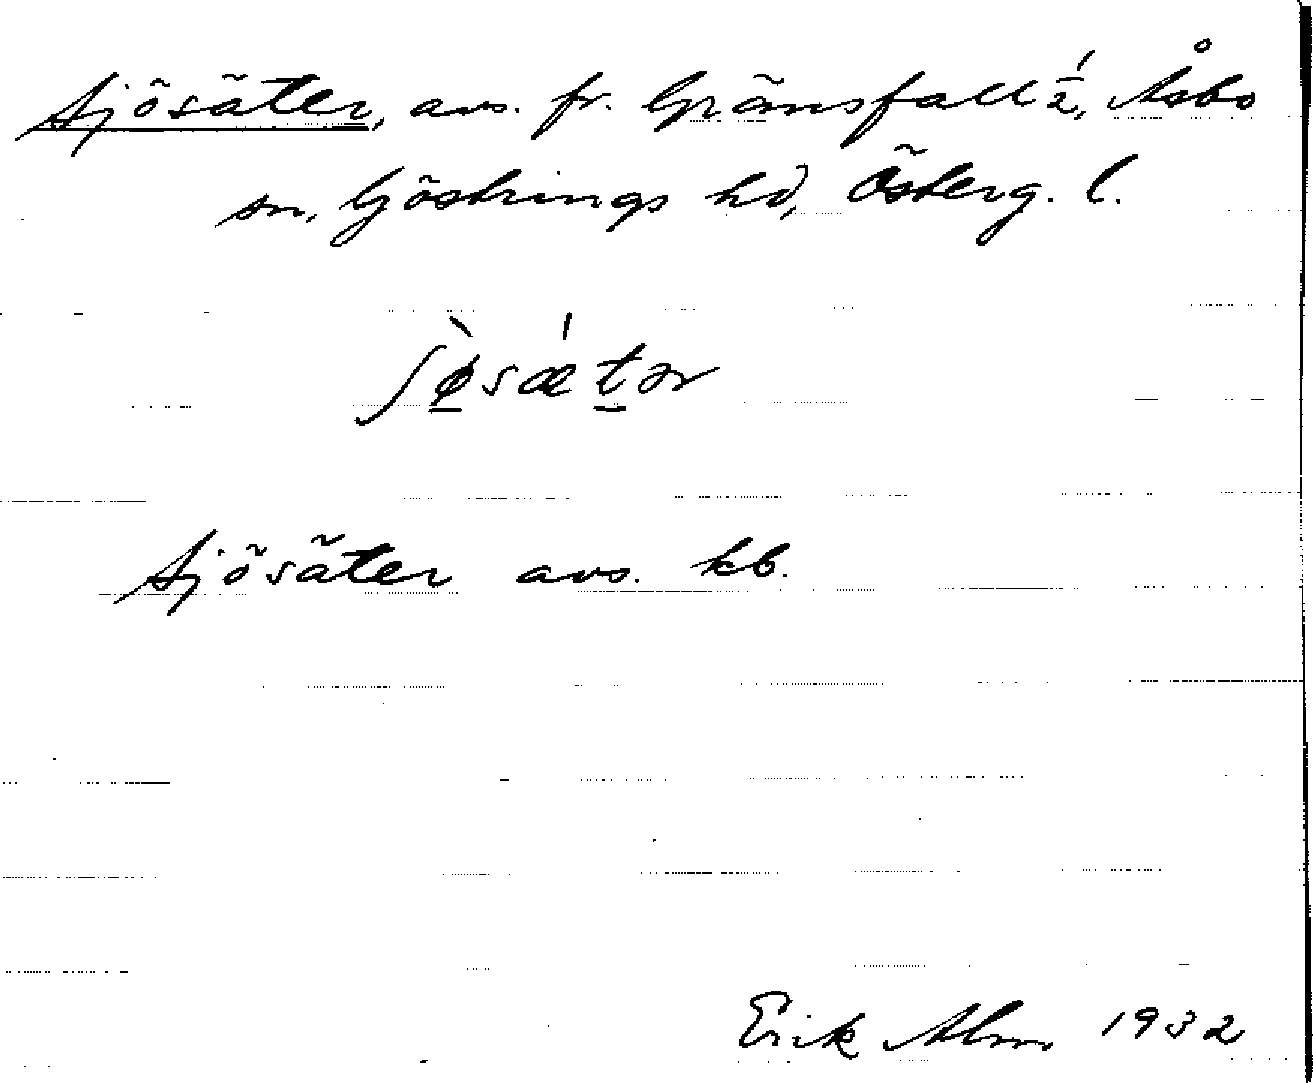 Sjösäter, avs. fr. Gränsfall 1/2, Åsbo
sn, Göstrings hd, Österg. l.
ʃø̠̀sǽt̠ər
Sjösäter avs. kb.
Erik Alm 1932